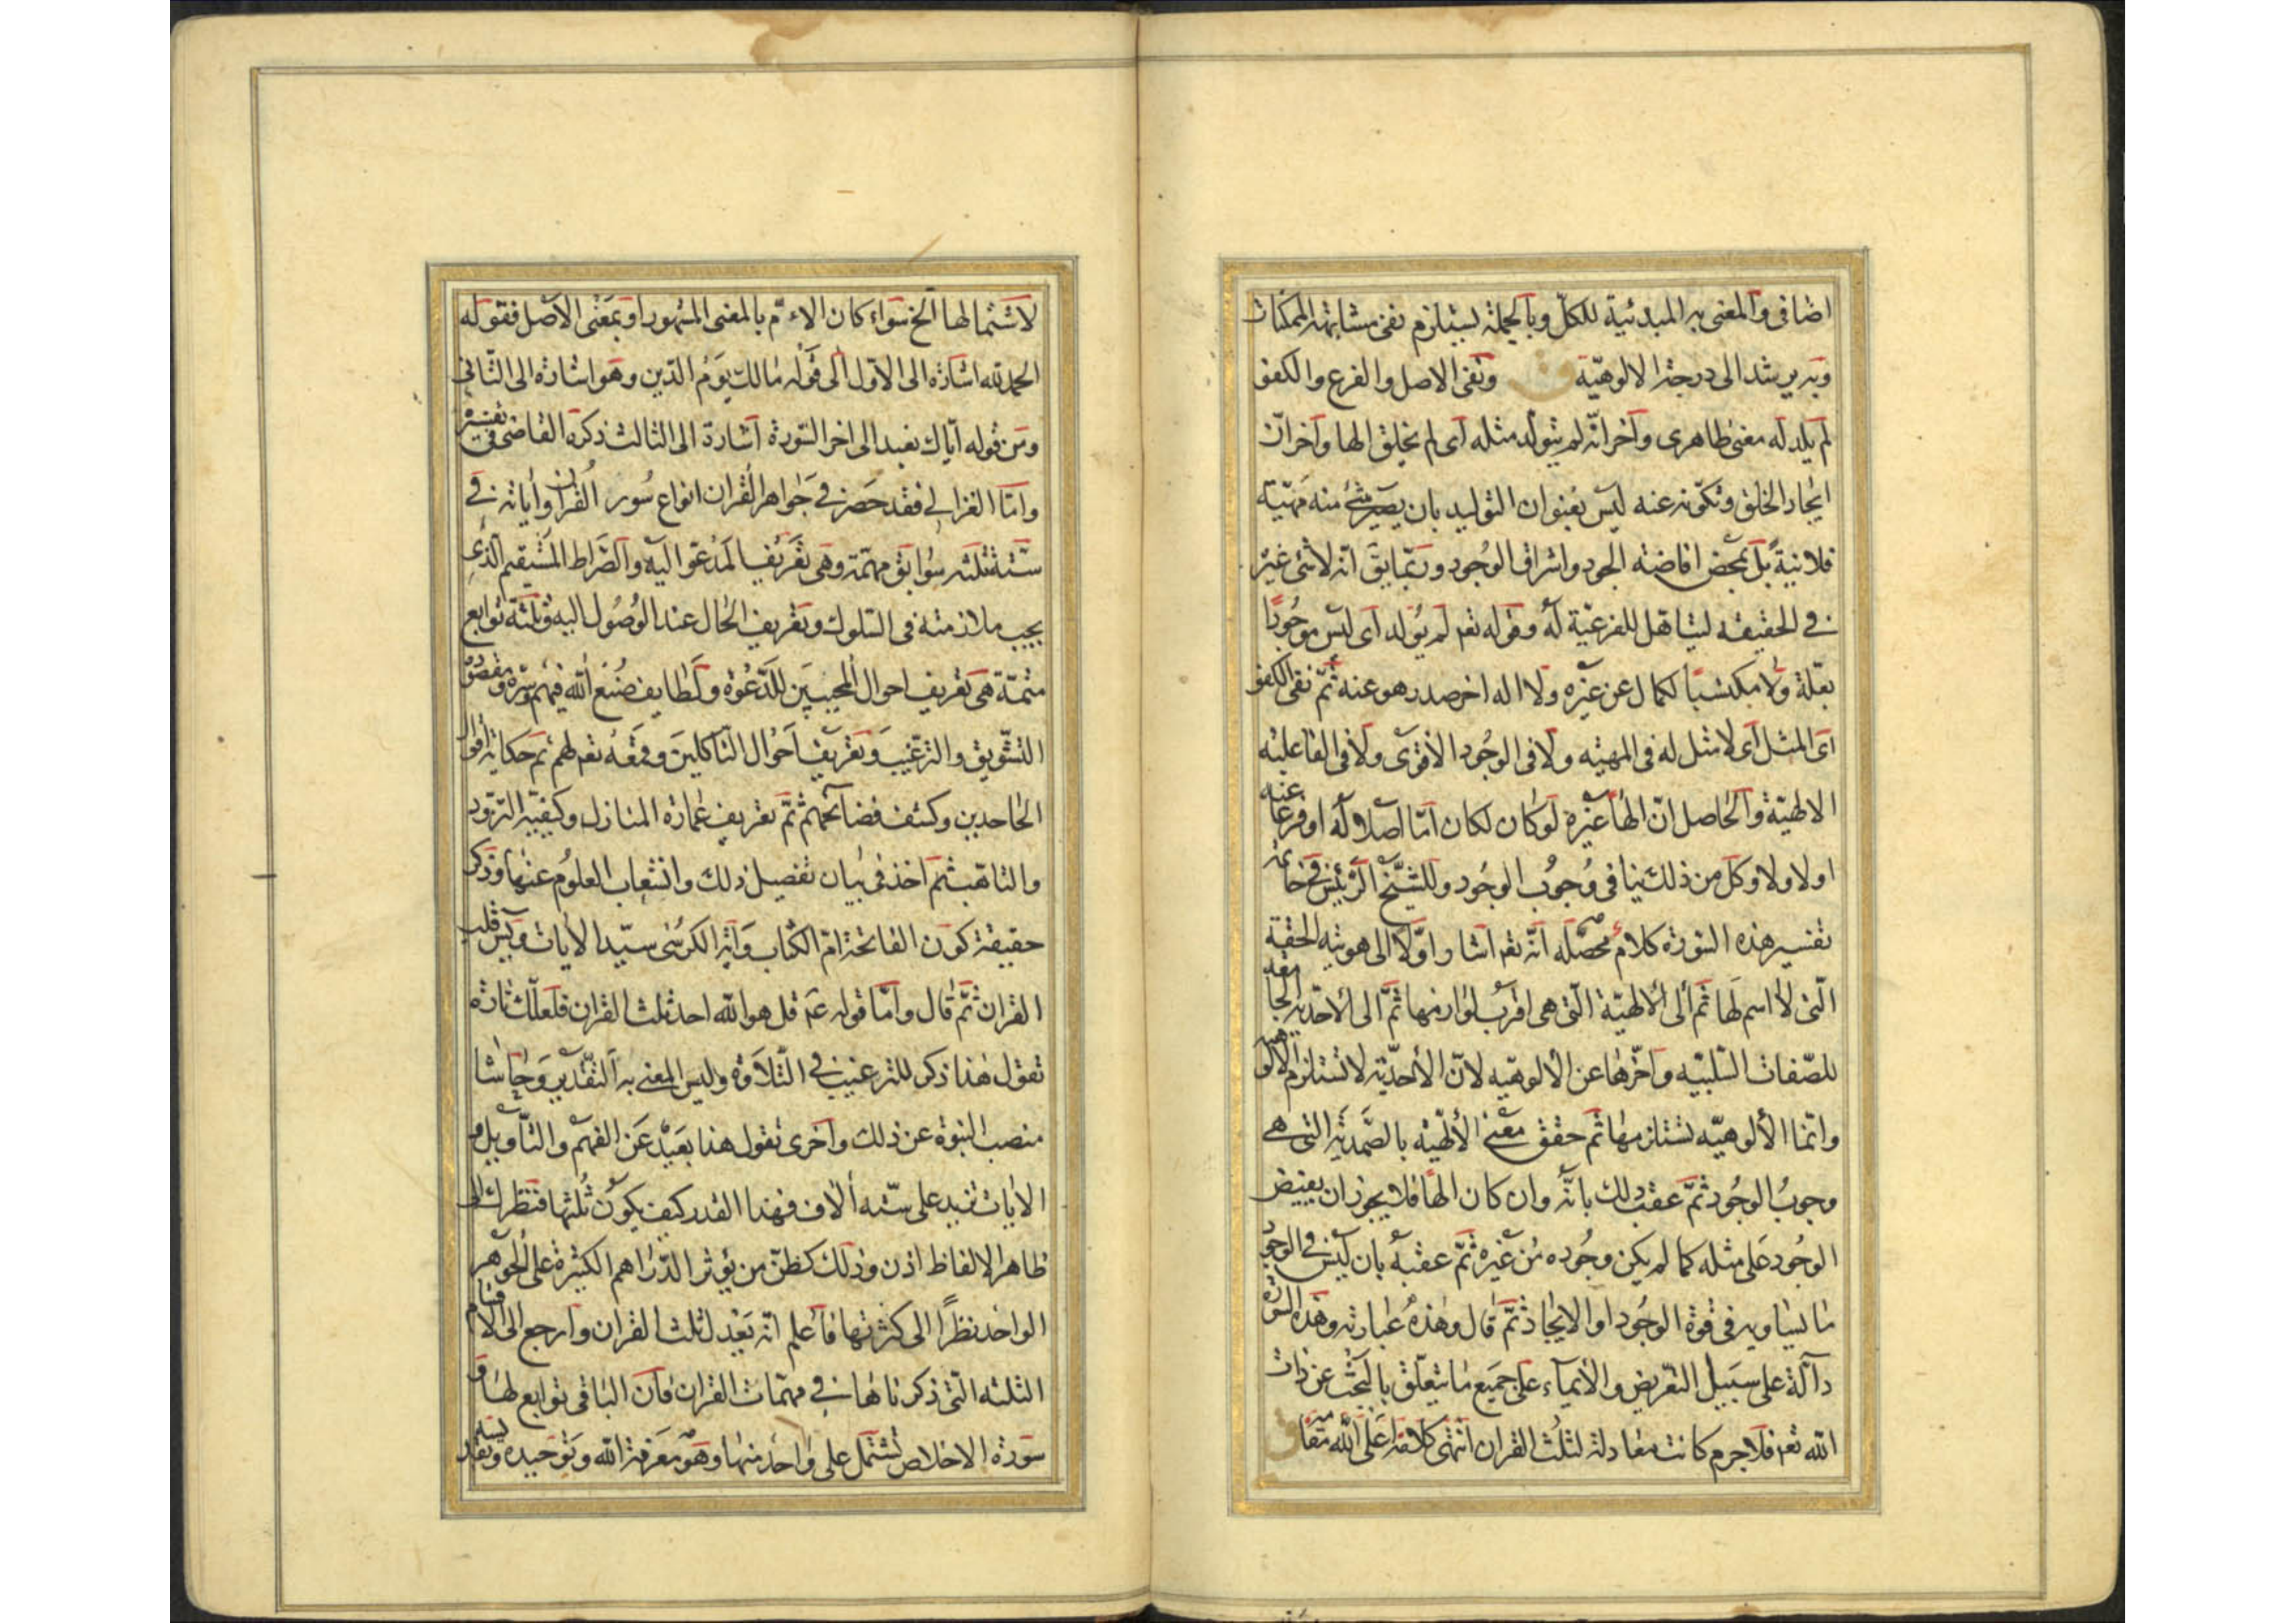 اضافى والمعنى به المبدئية للكلّ وبالجملة يستلزم نفى مشابهة الممكنات
وبه يرشد الى درجة الالوهيّة ونفى الاصل والفرع والكفو
لم يلد له معنى ظاهرى وآخر انّه لم يتولد مثله اى لم يخلق الها وآخر انّ
ايجاد الخلق وتكوّنه عنه ليس بعنوان التوليد بان يصير شئ منه مهيّة
فلانية بل بمحض افاضته الجود واشراق الوجود وربّما يق انّه لا شئ غيره
فى الحقيقه ليتاهل للفرعيّة له وقوله تعـ لم يولد اى ليس موجودًا
بعلّة ولا مكتسبا لكمال عن غيره ولا اله اخر صدر هو عنه ثمّ نفى الكفو
اى المثل اى لا مثل له فى المهيّه ولا فى الوجود الاقوى ولا فى الفاعليه
الالهيّة والحاصل انّ الهاً غيره لو كان لكان امّا اصلا له او فرعا عنه
اولا ولا وكل من ذلك ينافى وجوب الوجود وللشيخ الرئيس فى خاتمة
تفسير هذه السورة كلام محصّله انّه تعـ اشار اوّلا الى هويته الحقة
الّتى لا اسم لها ثم الى الالهيّة الّتى هى اقرب لوازمها ثمّ الى الاحديه الجامعه
للصّفات السّلبيّه واخّرها عن الالوهيّه لانّ الاحديّه لا تستلزم الالوهيه
وانّما الألوهيّه تستلزمها ثم حقق معنى الالهيّه بالصّمديّه التى هى
وجوب الوجود ثمّ عقب ذلك بانّه وان كان الهاً فلا يجوز ان يفيض
الوجود على مثله كما لم يكن وجوده من غيره ثمّ عقبه بان ليس فى الوجود
ما يساويه فى قوة الوجود او الايجاد ثمّ قال وهذه عبارته وهذه السورة
دالّة على سبيل التعريض والايماء على جميع ما يتعلّق بالبحث عن ذات
الله تعـ فلا جرم كانت معادلة لثلث القران انتهى كلامه على الله مقامه
لاشتمالها الخ سواء كان الامّ بالمعنى المشهور او بمعنى الاصل فقوله
الحمد لله اشارة الى الاوّل الى قوله مالك يوم الدّين وهو اشارة الى الثّانى
ومن قوله ايّاك نعبد الى اخر السّورة اشارة الى الثالث ذكره القاضى فى تفسيره
وامّا الغزالى فقد حصر فى جواهر القران انواع سور القران وآياته فى
ستّة ثلثه سوابق مهمّة وهى تعريف المدعوّ اليه والصّراط المستقيم الّذى
يجب ملازمته فى السّلوك وتعريف الحال عند الوصول اليه وثلثة توابع
متمّة هى تعريف احوال المجيبين للدّعوة ولطايف صنع الله فيهم وسرّه ومقصوده
التشويق والترغيب وتعريف احوال النّاكلين وقمعه تعـ لهم ثم حكاية اقوال
الجاحدين وكشف فضائحهم ثمّ تعريف عمارة المنازل وكيفيّة التزود
والتاهّب ثم اخذ فى بيان تفصيل ذلك وانشعاب العلوم عنها وذكر
حقيقة كون الفاتحة امّ الكتاب وآية الكرسى سيّد الايات ويس قلب
القران ثمّ قال وامّا قوله عم قل هو الله احد ثلث القران فلعلّك تارة
تقول هذا ذكر للترغيب فى التّلاوة وليس المعنى به التقدير وحاشا
منصب النبوة عن ذلك واخرى تقول هذا بعيد عن الفهم والتّأويل و
الايات تزيد على ستّه الاف فهذا القدر كيف يكون ثلثها فتنظر الى
ظاهر الالفاظ اذن وذلك كظنّ من يؤثر الدّراهم الكثيرة على الجوهر
الواحد نظرًا الى كثرتها فاعلم انّه يعدل ثلث القران وارجع الى الاقسام
الثلثه الّتى ذكرناها فى مهمّات القران فان الباقى توابع لها و
سورة الاخلاص تشتمل على واحد منها وهو معرفة الله وتوحيده وتقديسه